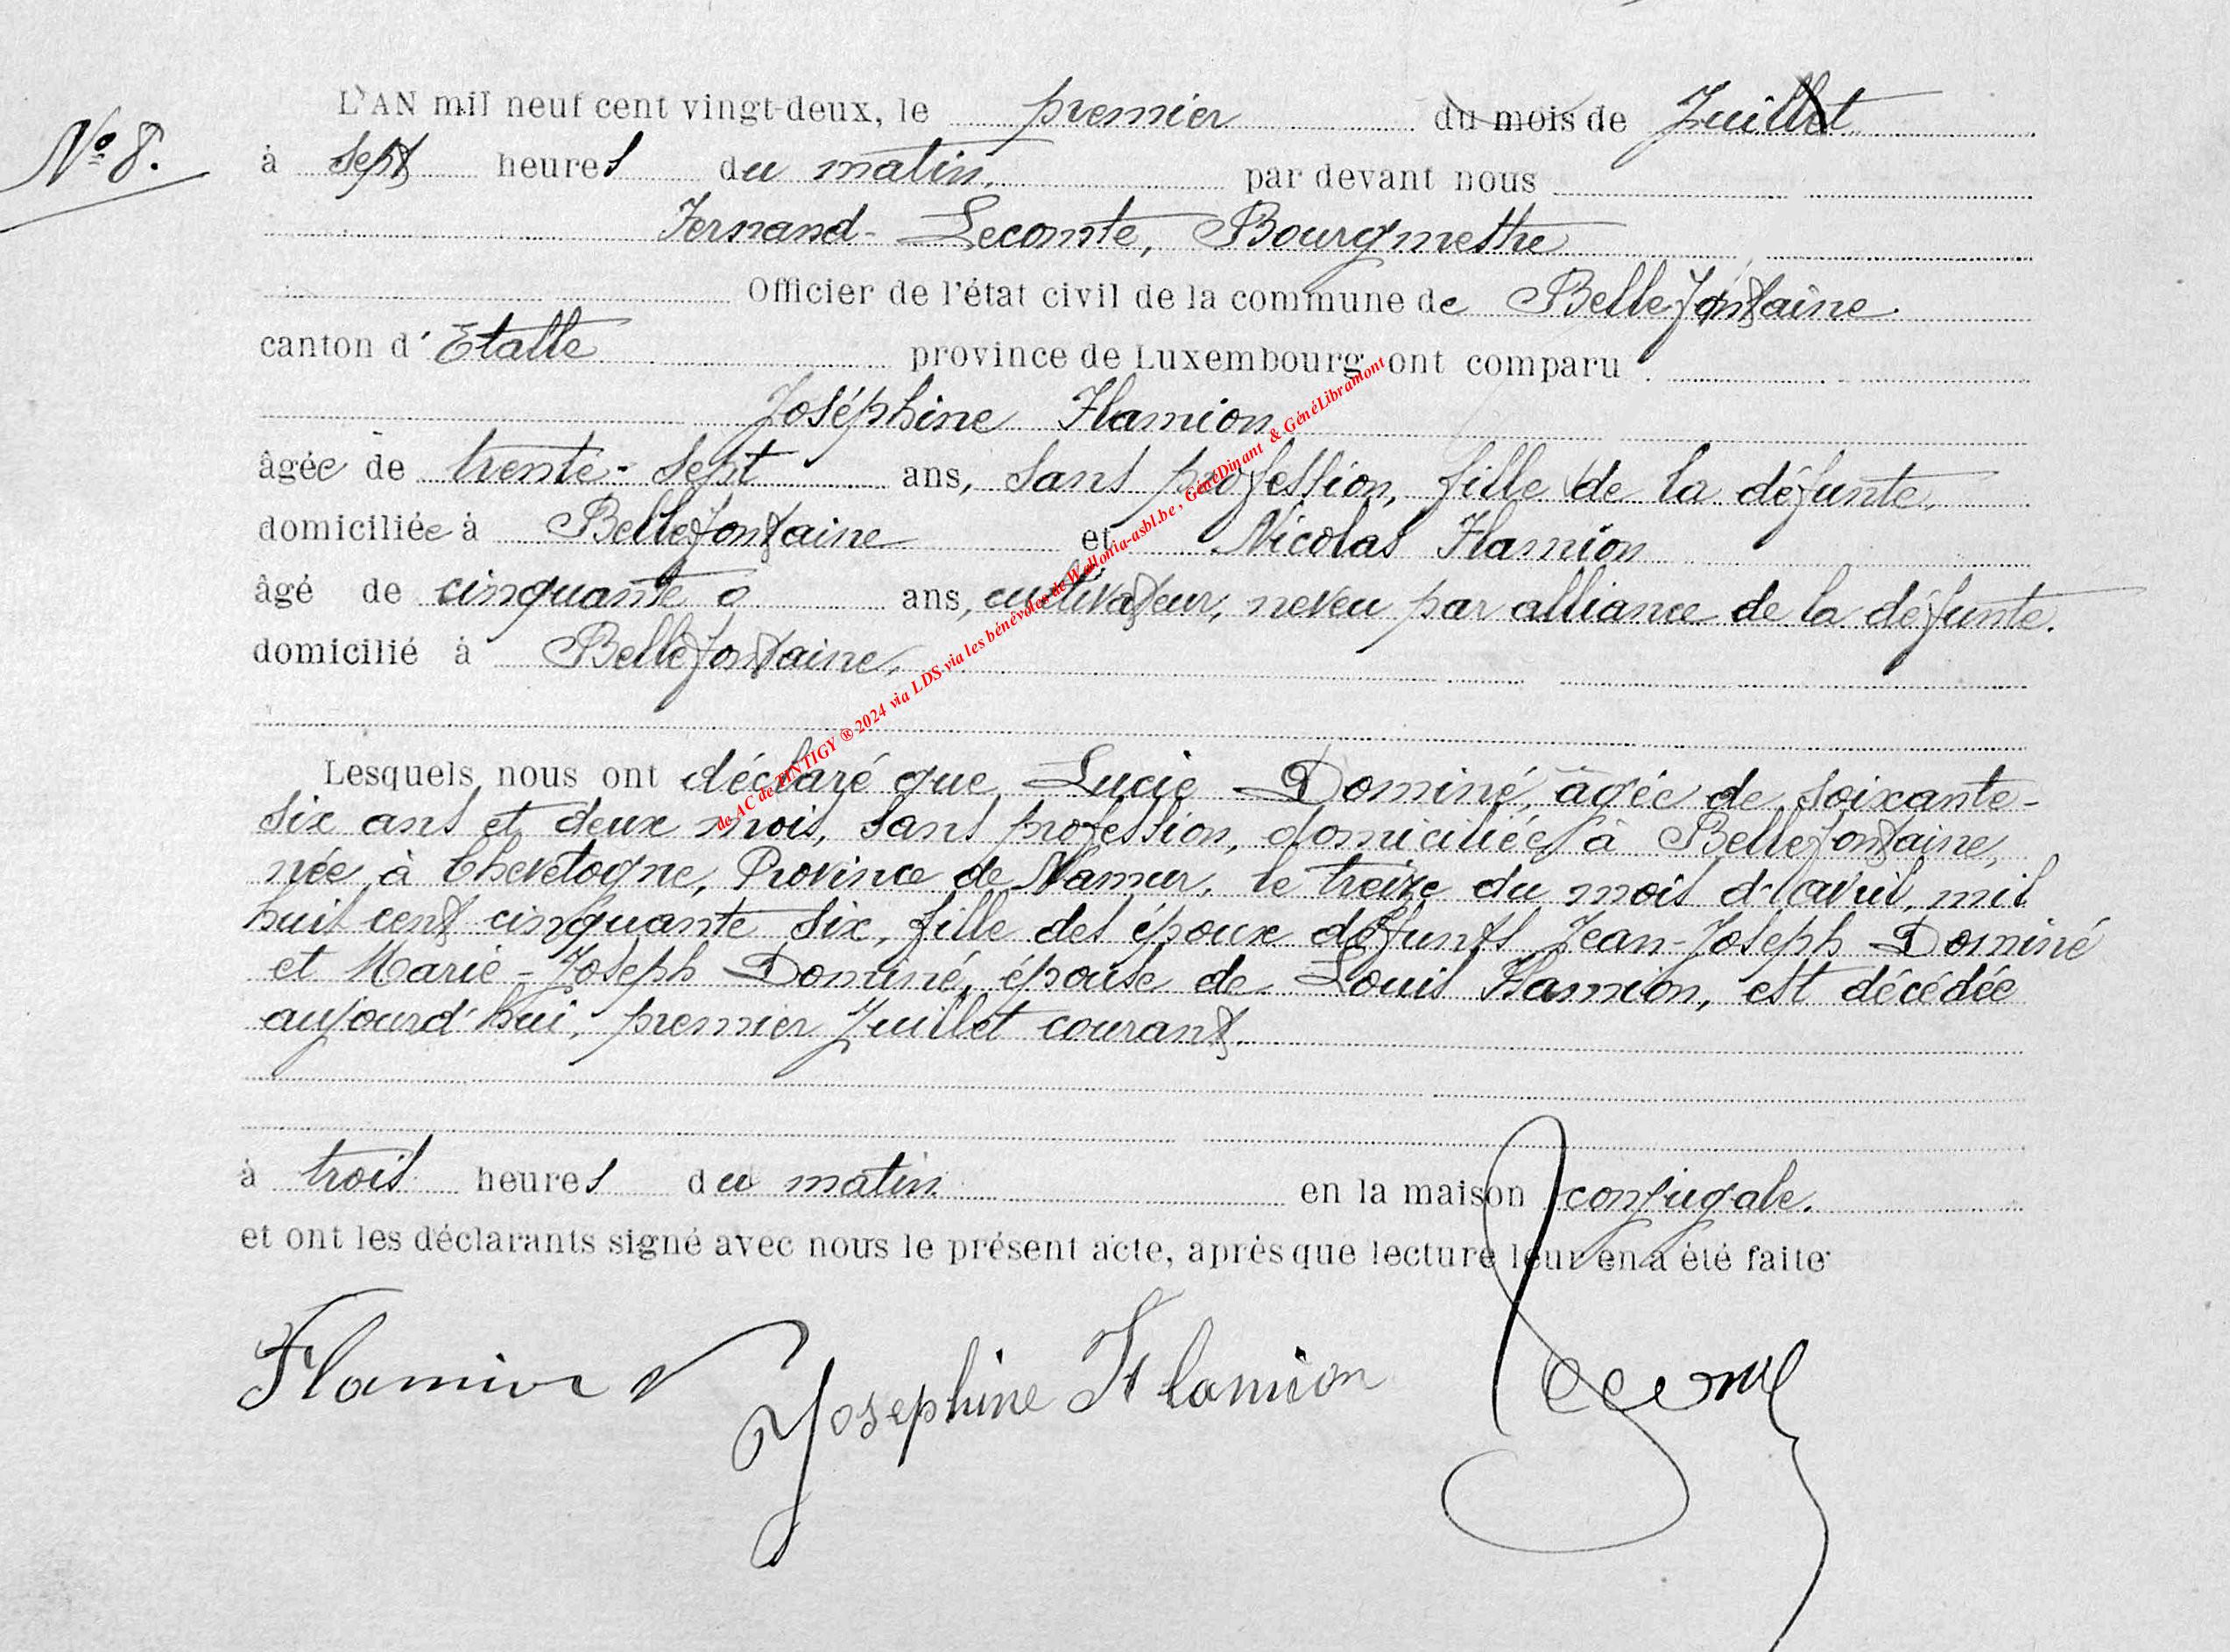 L'AN mil neuf cent vingt-deux, le premier du mois de Juillet
N° 8.
à sept heures du matin, par devant nous
Fernand Lecomte, Bourgmestre
Officier de l'état civil de la commune de Bellefontaine
canton d'Etalle province de Luxembourg ont comparu
Joséphine Flamion
âgée de trente-sept ans, sans profession, fille de la défunte,
domiciliée à Bellefontaine et Nicolas Flamion
âgé de cinquante ans, cultivateur, neveu par alliance de la défunte.
domicilié à Bellefontaine.
Lesquels nous ont déclaré que Lucie Dominé, âgée de soixante-
six ans et deux mois, sans profession, domiciliée à Bellefontaine,
née à Chevetogne, Province de Namur, le treize du mois d'avril, mil
huit cent cinquante six, fille des époux défunts Jean-Joseph Dominé
et Marie-Joseph Dominé, épouse de Louis Flamion, est décédée
aujourd'hui, premier Juillet courant.
à trois heures du matin en la maison conjugale.
et ont les déclarants signé avec nous le présent acte, après que lecture leur en a été faite
Flamion Josephine Flamion
de AC de TINTIGY ® 2024 via LDS-via les bénévoles de Wallonia-asbl.be , GénéDinant & GénéLibramont